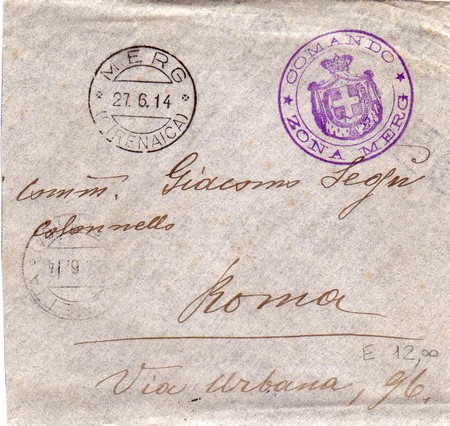 MERG
27.6.14
(CIRENAICA)
COMANDO
ZONA MERG
Comm. Giacomo Segù
Colonnello
6.14
Roma
E 12,00
Via Urbana, 96.